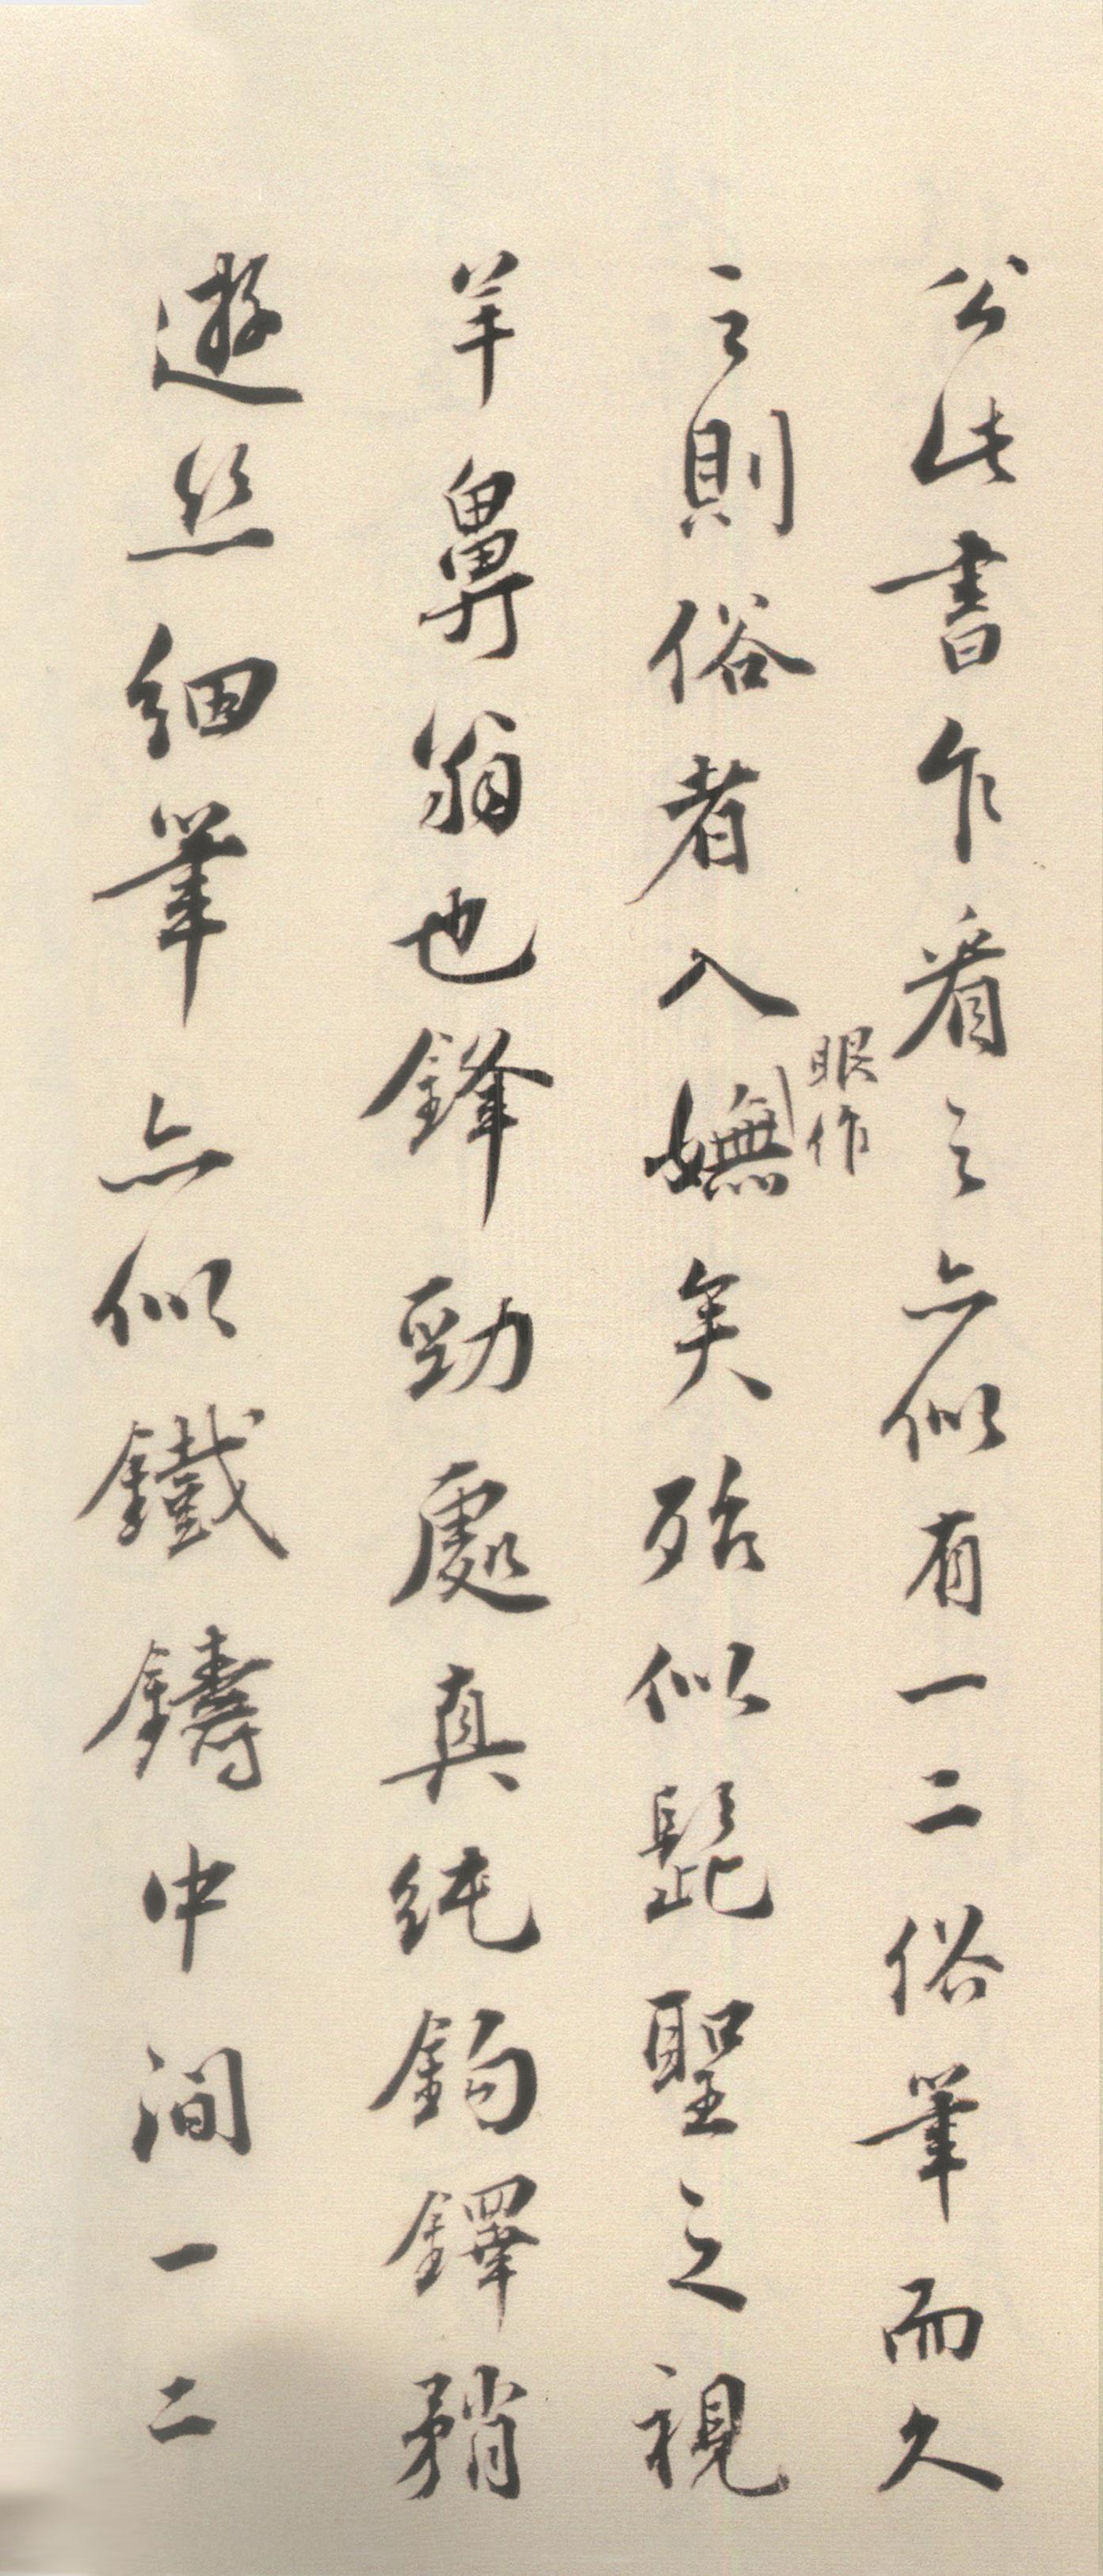 公此書乍看之亦似有一二俗筆而久
之則俗者入眼作嫵矣殆似髭聖之視
羊鼻翁也鋒勁處真純鉤鐸矟
遊絲細筆亦似鐵鑄中間一二